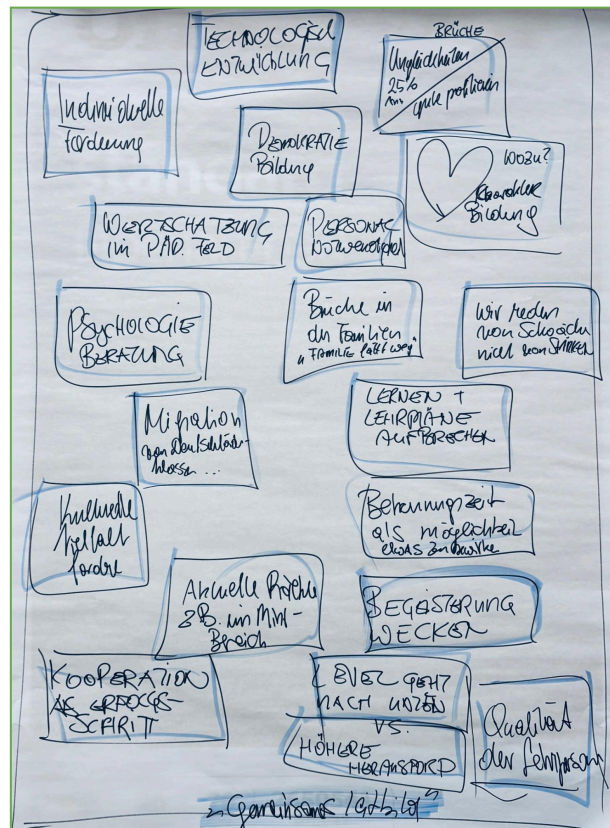 TECHNOLOGISCH
ENTWICKLUNG
BRÜCHE
Ungleichheiten
25%
Arm
gute politisch
Individuelle
Förderung
DEMOKRATIE
Bildung
WOZU?
Bildung
WERTSCHÄTZUNG
IM PÄD. FELD
PERSONAL
PSYCHOLOGIE
BERATUNG
Brüche in
den Familien
"FAMILIE fällt weg"
Wir reden
von Schwächen
nicht von Stärken
Migration
von Deutschförder-
klassen ...
LERNEN +
LEHRPLÄNE
AUFBRECHEN
Kulturelle
Vielfalt
fördern
Betreuungszeit
als möglichkeit
etwas zu bewirken
Aktuelle
z.B. im Mint-
Bereich
BEGEISTERUNG
WECKEN
KOOPERATION
ALS ERFOLGS-
SCHRITT
LEVEL GEHT
NACH UNTEN
VS.
HÖHERE
HERAUSFORD
Qualität
der Lehrperson
"Gemeinsames Leitbild"